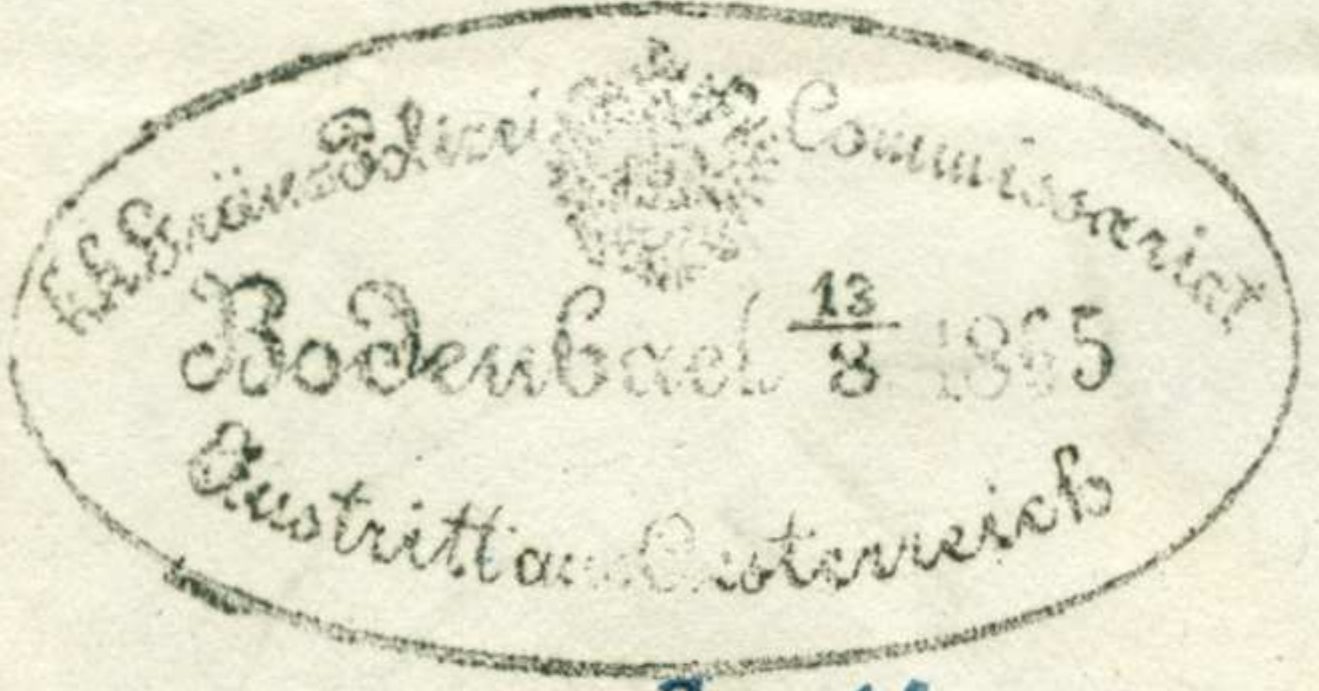 K.K. Gränz Polizei Commissariat
Bodenbach 13/8 1865
Austritt aus Oesterreich